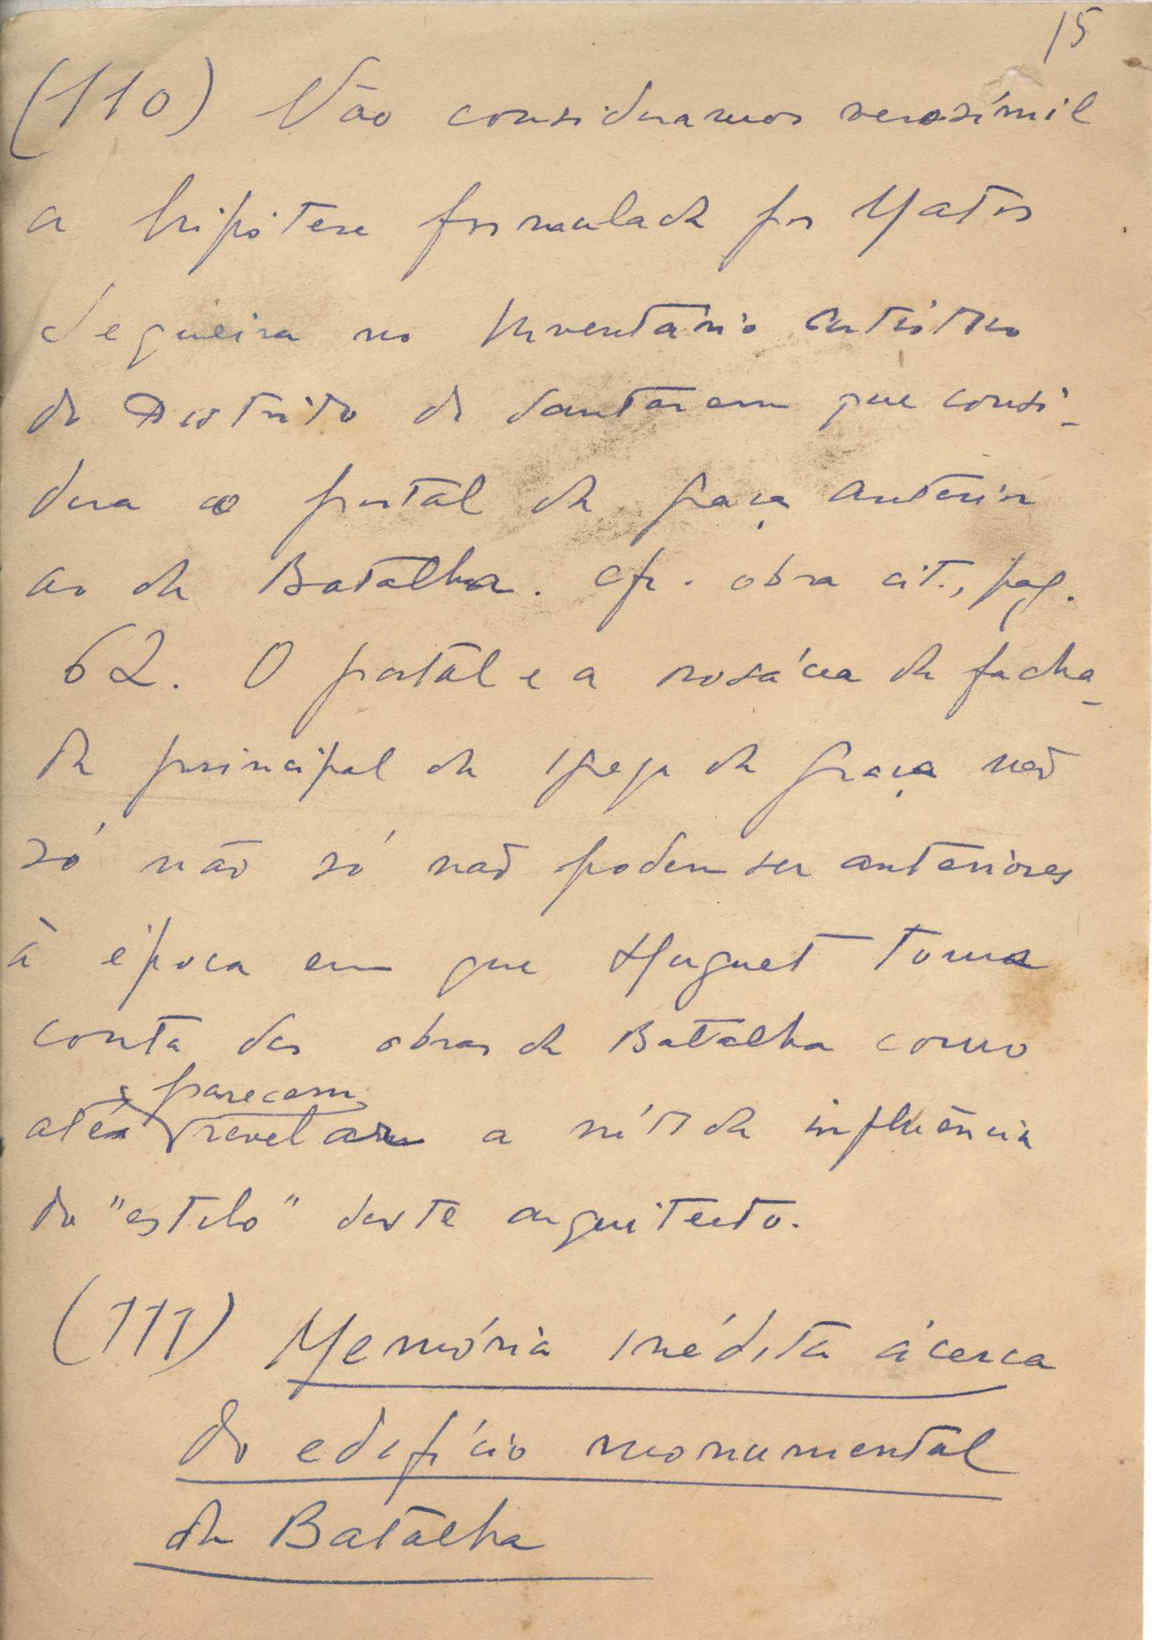 15
(110) Não consideramos verosímil
a hipótese formulada por Matos
Sequeira no Inventário Artístico
do Distrito de Santarem que consi-
dera o portal da Graça anterior
ao da Batalha. Cfr. obra cit., pag.
62. O portal e a rosácea da facha-
da principal da Igreja da Graça não
só não só não podem ser anteriores
à época em que Huguet toma
conta das obras da Batalha como
parecem
até revelar a nítida influência
do "estilo" deste arquitecto.
(111) Memória inédita ácerca
do edifício monumental
da Batalha